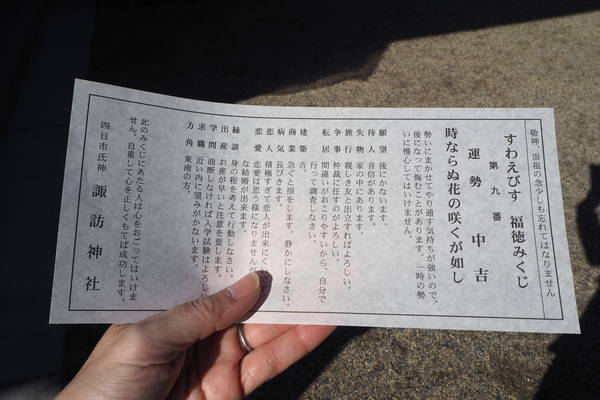 敬神、崇祖の念少しも忘れてはなりません
すわえびす 福徳みくじ
第九番
運勢 中吉
時ならぬ花の咲くが如し
勢いにまかせてやり通す気持ちが強いので、
後になって悔むことがあります。一時の勢
いに慢心してはいけません。
願望 後にかないます。
待人 音信があります。
失物 家の中にあります。
旅行 親しき友と出立すればよろしい。
争事 仲裁に任すのがよろしい。
転居 間違いがおこりやすいから、自分で
行って調査しなさい。
建築 吉。
商業 急ぐと損をします。静かにしなさい。
病気 長びきます。
恋人 積極すぎて恋人が出来にくい
恋愛 恋愛は思う様になりませんが
な結婚が出来ます。
縁談 身の程を考えて行動しなさい。
出産 お産が早いと注意を要します。
学問 油断しなければ入学試験はよろしい
求職 近い内に望みがかないます。
方角 東南の方。
此のみくじにあたる人は心をおごってはいけま
せん。自重して心を正しくもてば成功します。
四日市氏神 諏訪神社